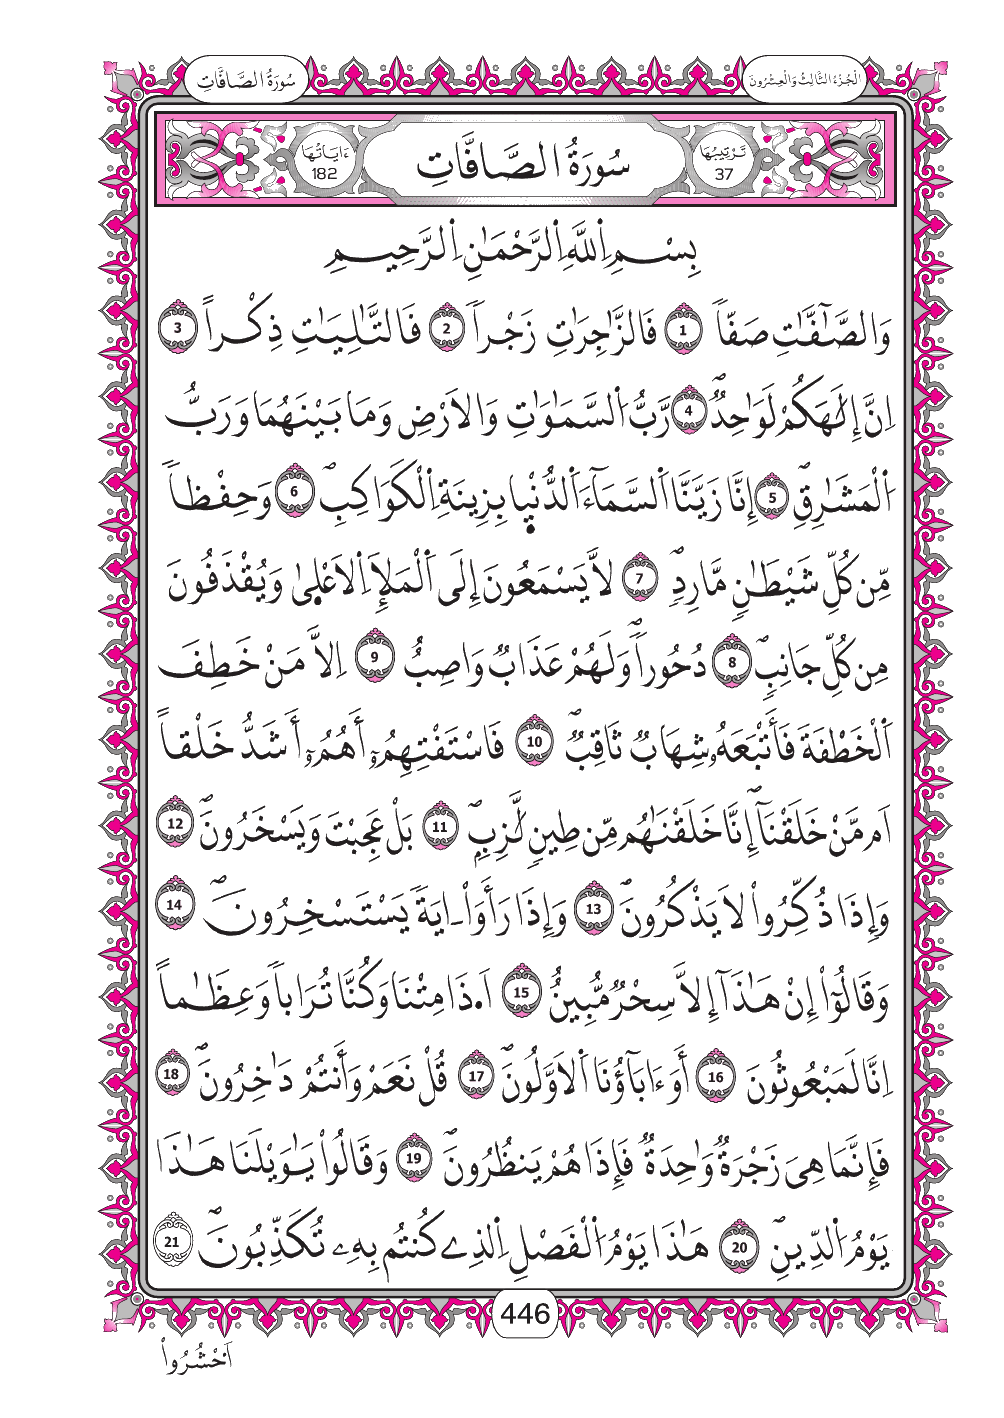 سُورَةُ الصَّافَّاتِ
الْجُزْءُ الثَّالِثُ وَالْعِشْرُونَ
تَرْتِيبُهَا 37
سُورَةُ الصَّافَّاتِ
ءَايَاتُهَا 182
بِسْمِ اِ۬للَّهِ اِ۬لرَّحْمَٰنِ اِ۬لرَّحِيمِ
وَالصَّٰٓفَّٰتِ صَفّاٗ 1 فَالزَّٰجِرَٰتِ زَجْراٗ 2 فَالتَّٰلِيَٰتِ ذِكْراً 3
اِنَّ إِلَٰهَكُمْ لَوَٰحِدٞ 4 رَّبُّ اُ۬لسَّمَٰوَٰتِ وَالَارْضِ وَمَا بَيْنَهُمَا وَرَبُّ
اُ۬لْمَشَٰرِقِ 5 إِنَّا زَيَّنَّا اَ۬لسَّمَآءَ اَ۬لدُّنْي۪ا بِزِينَةِ اِ۬لْكَوَاكِبِ 6 وَحِفْظاٗ
مِّن كُلِّ شَيْطَٰنٖ مَّارِدٖ 7 لَّا يَسْمَعُونَ إِلَى اَ۬لْمَلَإِ اِ۬لَاعْل۪ىٰ وَيُقْذَفُونَ
مِن كُلِّ جَانِبٖ 8 دُحُوراٗ وَلَهُمْ عَذَابٞ وَاصِبٌ 9 اِلَّا مَنْ خَطِفَ
اَ۬لْخَطْفَةَ فَأَتْبَعَهُۥ شِهَابٞ ثَاقِبٞ 10 فَاسْتَفْتِهِمُۥٓ أَهُمُۥٓ أَشَدُّ خَلْقاً
اَم مَّنْ خَلَقْنَآ إِنَّا خَلَقْنَٰهُم مِّن طِينٖ لَّٰزِبٖ 11 بَلْ عَجِبْتَ وَيَسْخَرُونَ 12
وَإِذَا ذُكِّرُواْ لَا يَذْكُرُونَ 13 وَإِذَا رَأَوَاْ ـ ايَةٗ يَسْتَسْخِرُونَ 14
وَقَالُوٓاْ إِنْ هَٰذَآ إِلَّا سِحْرٞ مُّبِينٌ 15 اَ۟ذَا مِتْنَا وَكُنَّا تُرَاباٗ وَعِظَٰماً
اِنَّا لَمَبْعُوثُونَ 16 أَوَ ءَابَآؤُنَا اَ۬لَاوَّلُونَ 17 قُلْ نَعَمْ وَأَنتُمْ دَٰخِرُونَ 18
فَإِنَّمَا هِيَ زَجْرَةٞ وَٰحِدَةٞ فَإِذَا هُمْ يَنظُرُونَ 19 وَقَالُواْ يَٰوَيْلَنَا هَٰذَا
يَوْمُ اُ۬لدِّينِ 20 هَٰذَا يَوْمُ اُ۬لْفَصْلِ اِ۬لذِے كُنتُم بِهِۦ تُكَذِّبُونَ 21
446
اَ۟حْشُرُواْ